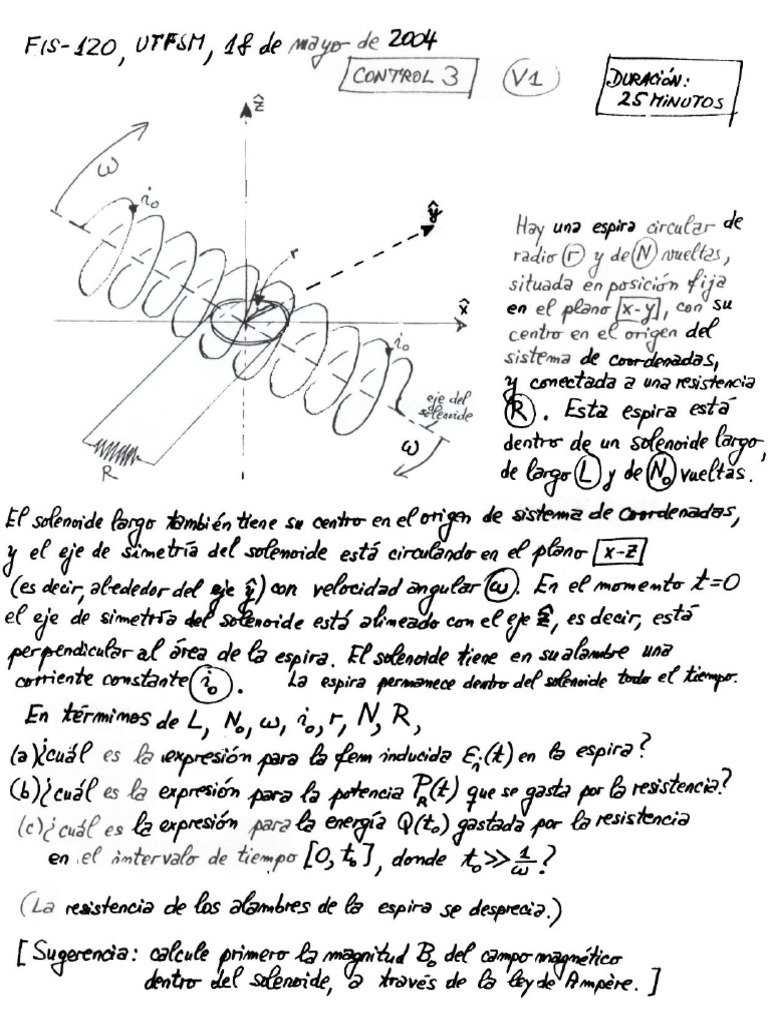 FIS-120, UTFSM, 18 de mayo de 2004
CONTROL 3
V1
DURACIÓN:
25 MINUTOS
ẑ
ω
i₀
r
ŷ
x̂
i₀
eje del
solenoide
ω
R
Hay una espira circular de
radio r y de N vueltas,
situada en posición fija
en el plano x-y, con su
centro en el origen del
sistema de coordenadas,
y conectada a una resistencia
R. Esta espira está
dentro de un solenoide largo,
de largo L y de N₀ vueltas.
El solenoide largo también tiene su centro en el origen de sistema de coordenadas,
y el eje de simetría del solenoide está circulando en el plano x-z
(es decir, alrededor del eje ŷ) con velocidad angular ω. En el momento t=0
el eje de simetría del solenoide está alineado con el eje ẑ, es decir, está
perpendicular al área de la espira. El solenoide tiene en su alambre una
corriente constante i₀. La espira permanece dentro del solenoide todo el tiempo.
En términos de L, N₀, ω, i₀, r, N, R,
(a) ¿cuál es la expresión para la fem inducida Ɛᵢ(t) en la espira?
(b) ¿cuál es la expresión para la potencia P_R(t) que se gasta por la resistencia?
(c) ¿cuál es la expresión para la energía Q(t₀) gastada por la resistencia
en el intervalo de tiempo [0, t₀], donde t₀ ≫ 1/ω?
(La resistencia de los alambres de la espira se desprecia.)
[Sugerencia: calcule primero la magnitud B₀ del campo magnético
dentro del solenoide, a través de la ley de Ampère.]